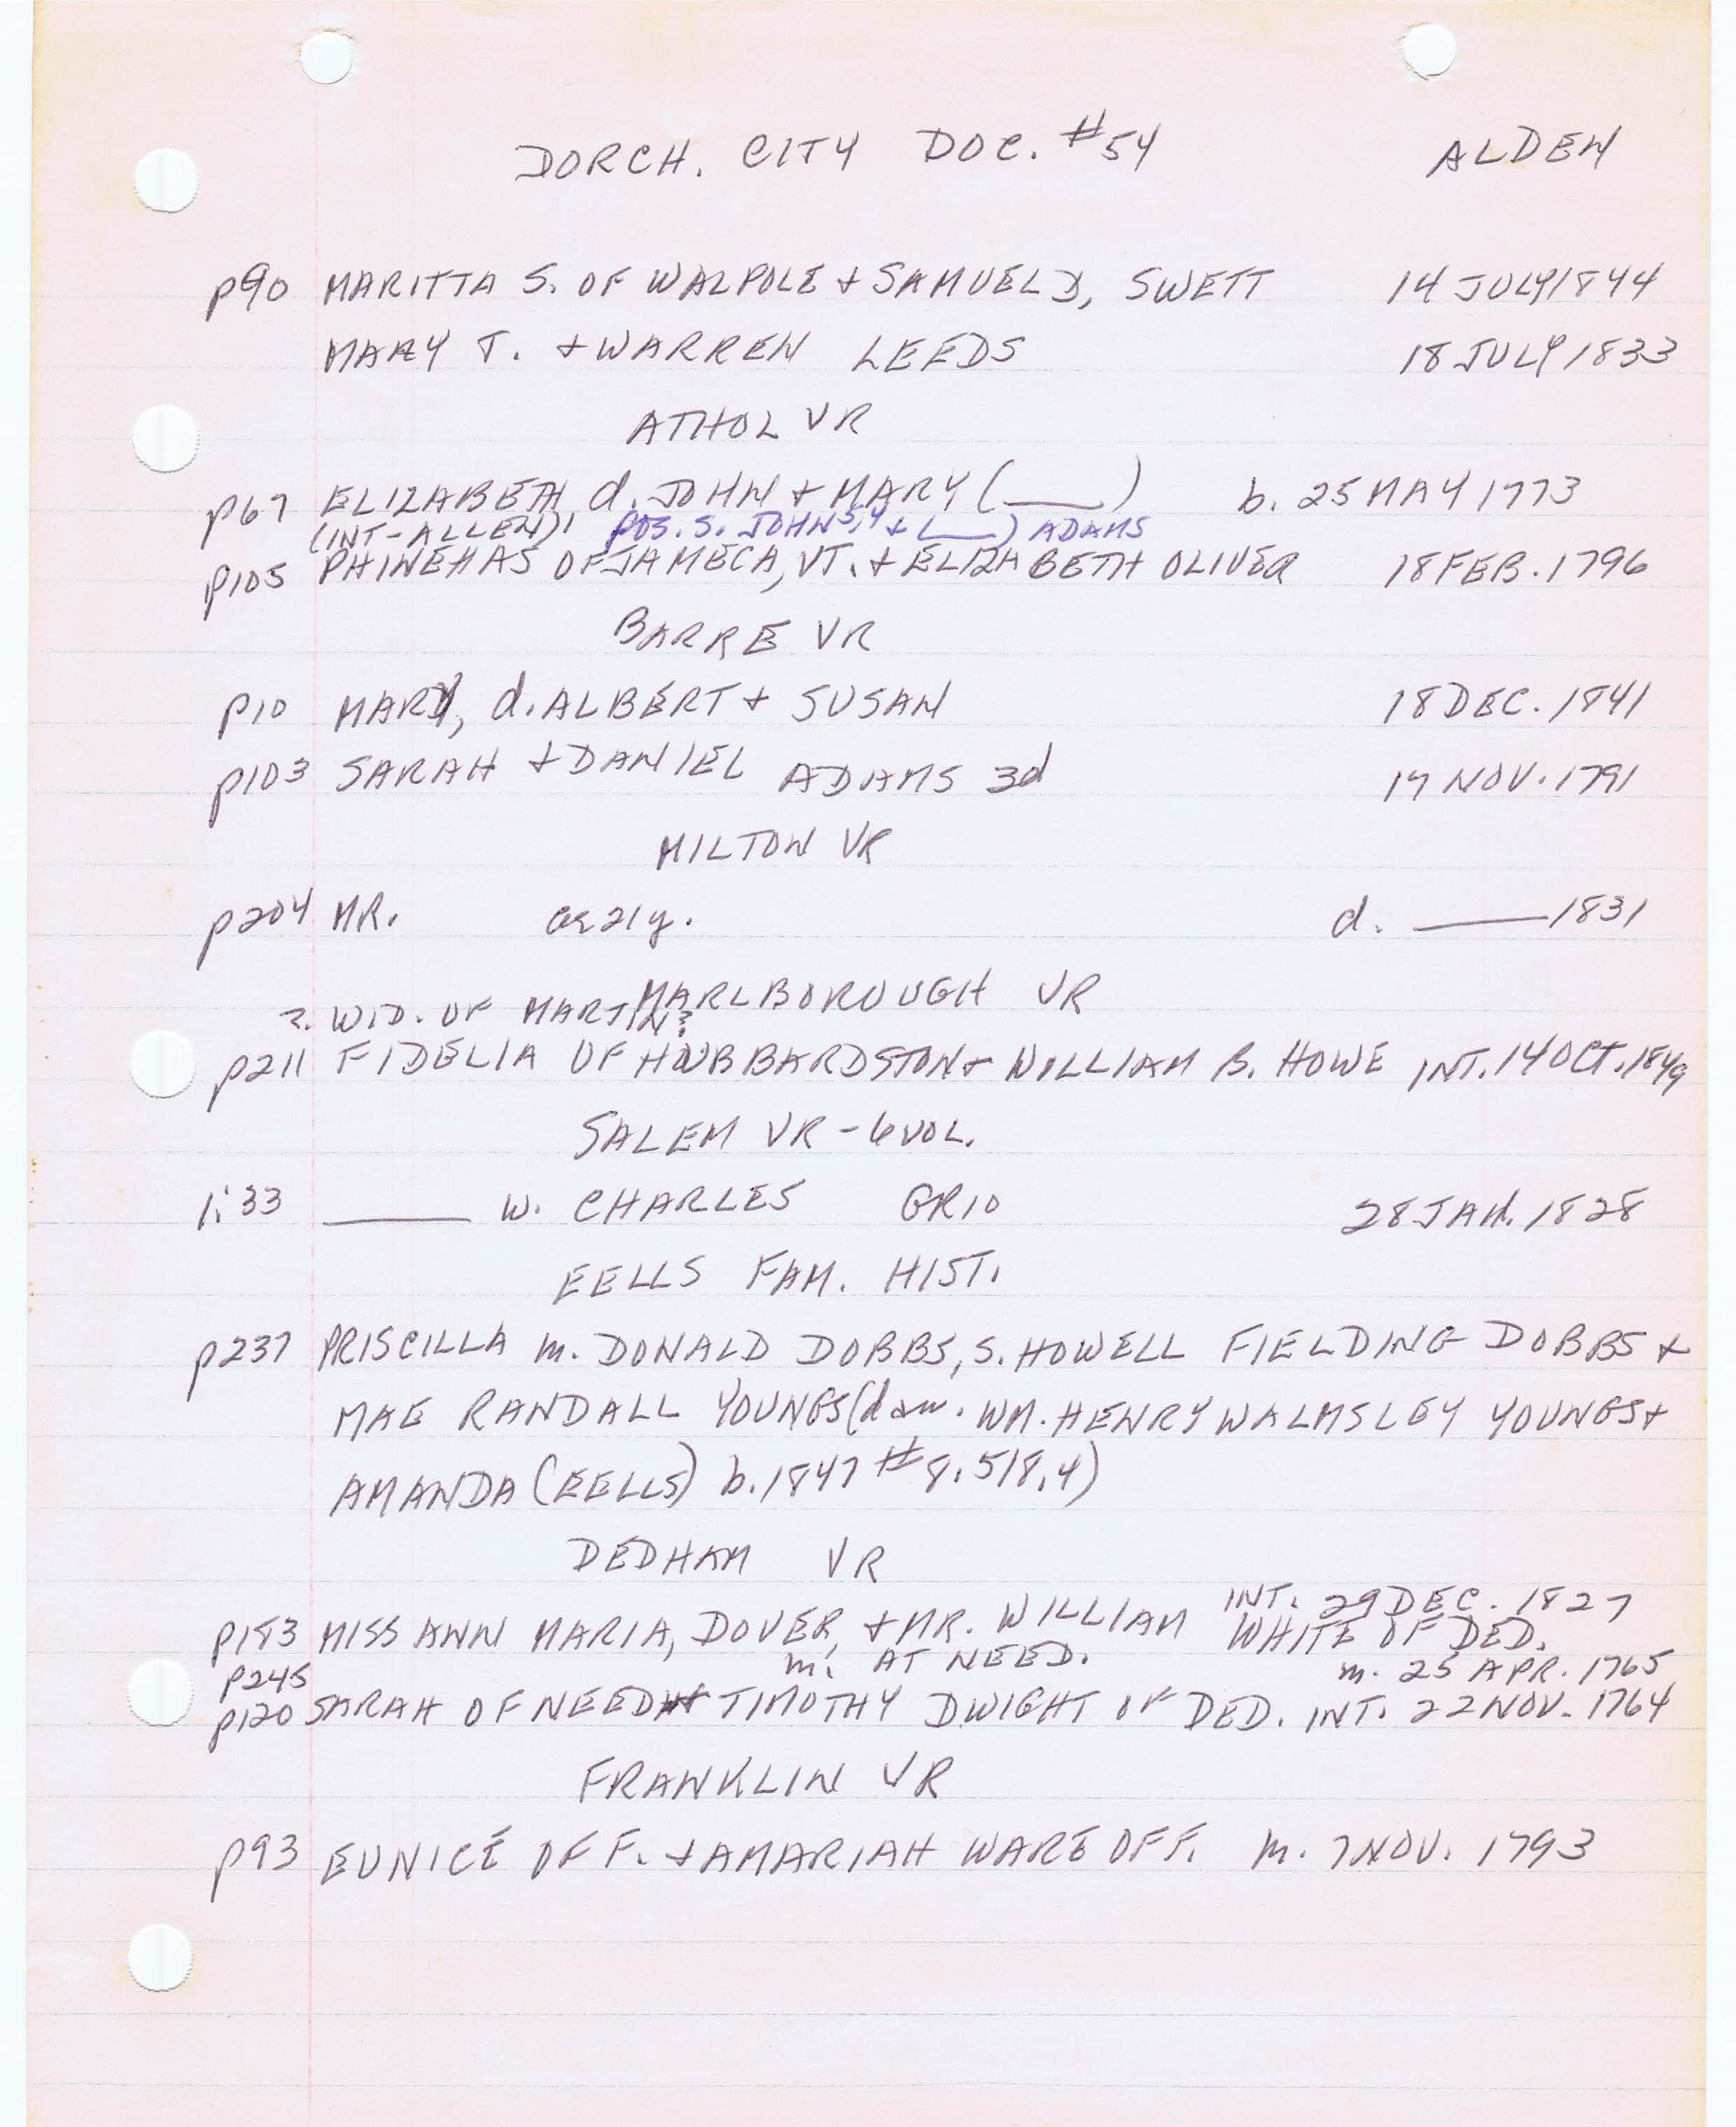 DORCH. CITY DOC. #54 ALDEN
p90 MARITTA S. OF WALPOLE + SAMUEL D. SWETT 14 JULY 1844
MARY T. + WARREN LEEDS 18 JULY 1833
ATHOL VR
p67 ELIZABETH, d. JOHN + MARY (___) b. 25 MAY 1773
(INT-ALLEN) POS. S. JOHN 5,4 + (___) ADAMS
p105 PHINEHAS OF JAMECA, VT. + ELIZABETH OLIVER 18 FEB. 1796
BARRE VR
p10 MARY, d. ALBERT + SUSAN 18 DEC. 1841
p103 SARAH + DANIEL ADAMS 3d 17 NOV. 1791
MILTON VR
p204 MR. ae 21y. d. ___ 1831
MARLBOROUGH VR
?. WID. OF MARTIN?
p211 FIDELIA OF HUBBARDSTON + WILLIAM B. HOWE INT. 14 OCT. 1849
SALEM VR - 6 VOL.
1:33 ___ w. CHARLES GR10 28 JAN. 1828
EELLS FAM. HIST.
p237 PRISCILLA m. DONALD DOBBS, S. HOWELL FIELDING DOBBS +
MAE RANDALL YOUNGS (dau. WM. HENRY WALMSLEY YOUNGS +
AMANDA (EELLS) b. 1847 #8.518.4)
DEDHAM VR
INT. 29 DEC. 1827
p183 MISS ANN MARIA, DOVER, + MR. WILLIAM WHITE OF DED.
p245 m. AT NEED. m. 25 APR. 1765
p120 SARAH OF NEED + TIMOTHY DWIGHT OF DED. INT. 22 NOV. 1764
FRANKLIN VR
p93 EUNICE OF F. + AMARIAH WARE OF F. m. 7 NOV. 1793